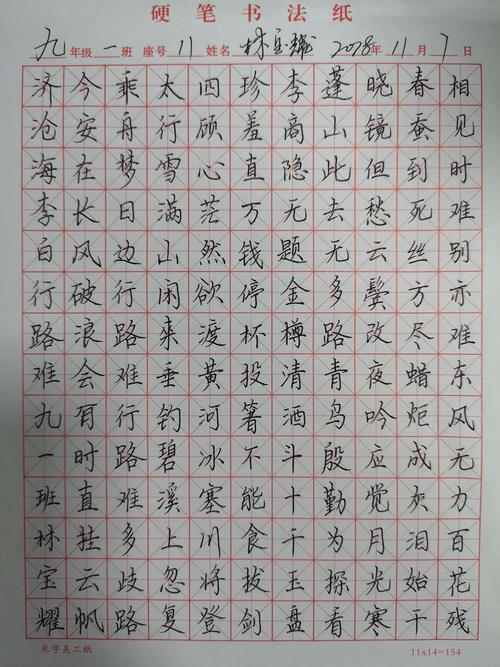 硬笔书法纸
九年级一班 座号11 姓名林宝耀 年11月7日
相见时难别亦难东风无力百花残
春蚕到死丝方尽蜡炬成灰泪始干
晓镜但愁云鬓改夜吟应觉月光寒
蓬山此去无多路青鸟殷勤为探看
李商隐无题金樽清酒斗十千玉盘
珍羞直万钱停杯投箸不能食拔剑
四顾心茫然欲渡黄河冰塞川将登
太行雪满山闲来垂钓碧溪上忽复
乘舟梦日边行路难行路难多歧路
今安在长风破浪会有时直挂云帆
济沧海李白行路难九一班林宝耀
米字美工纸
11x14=154